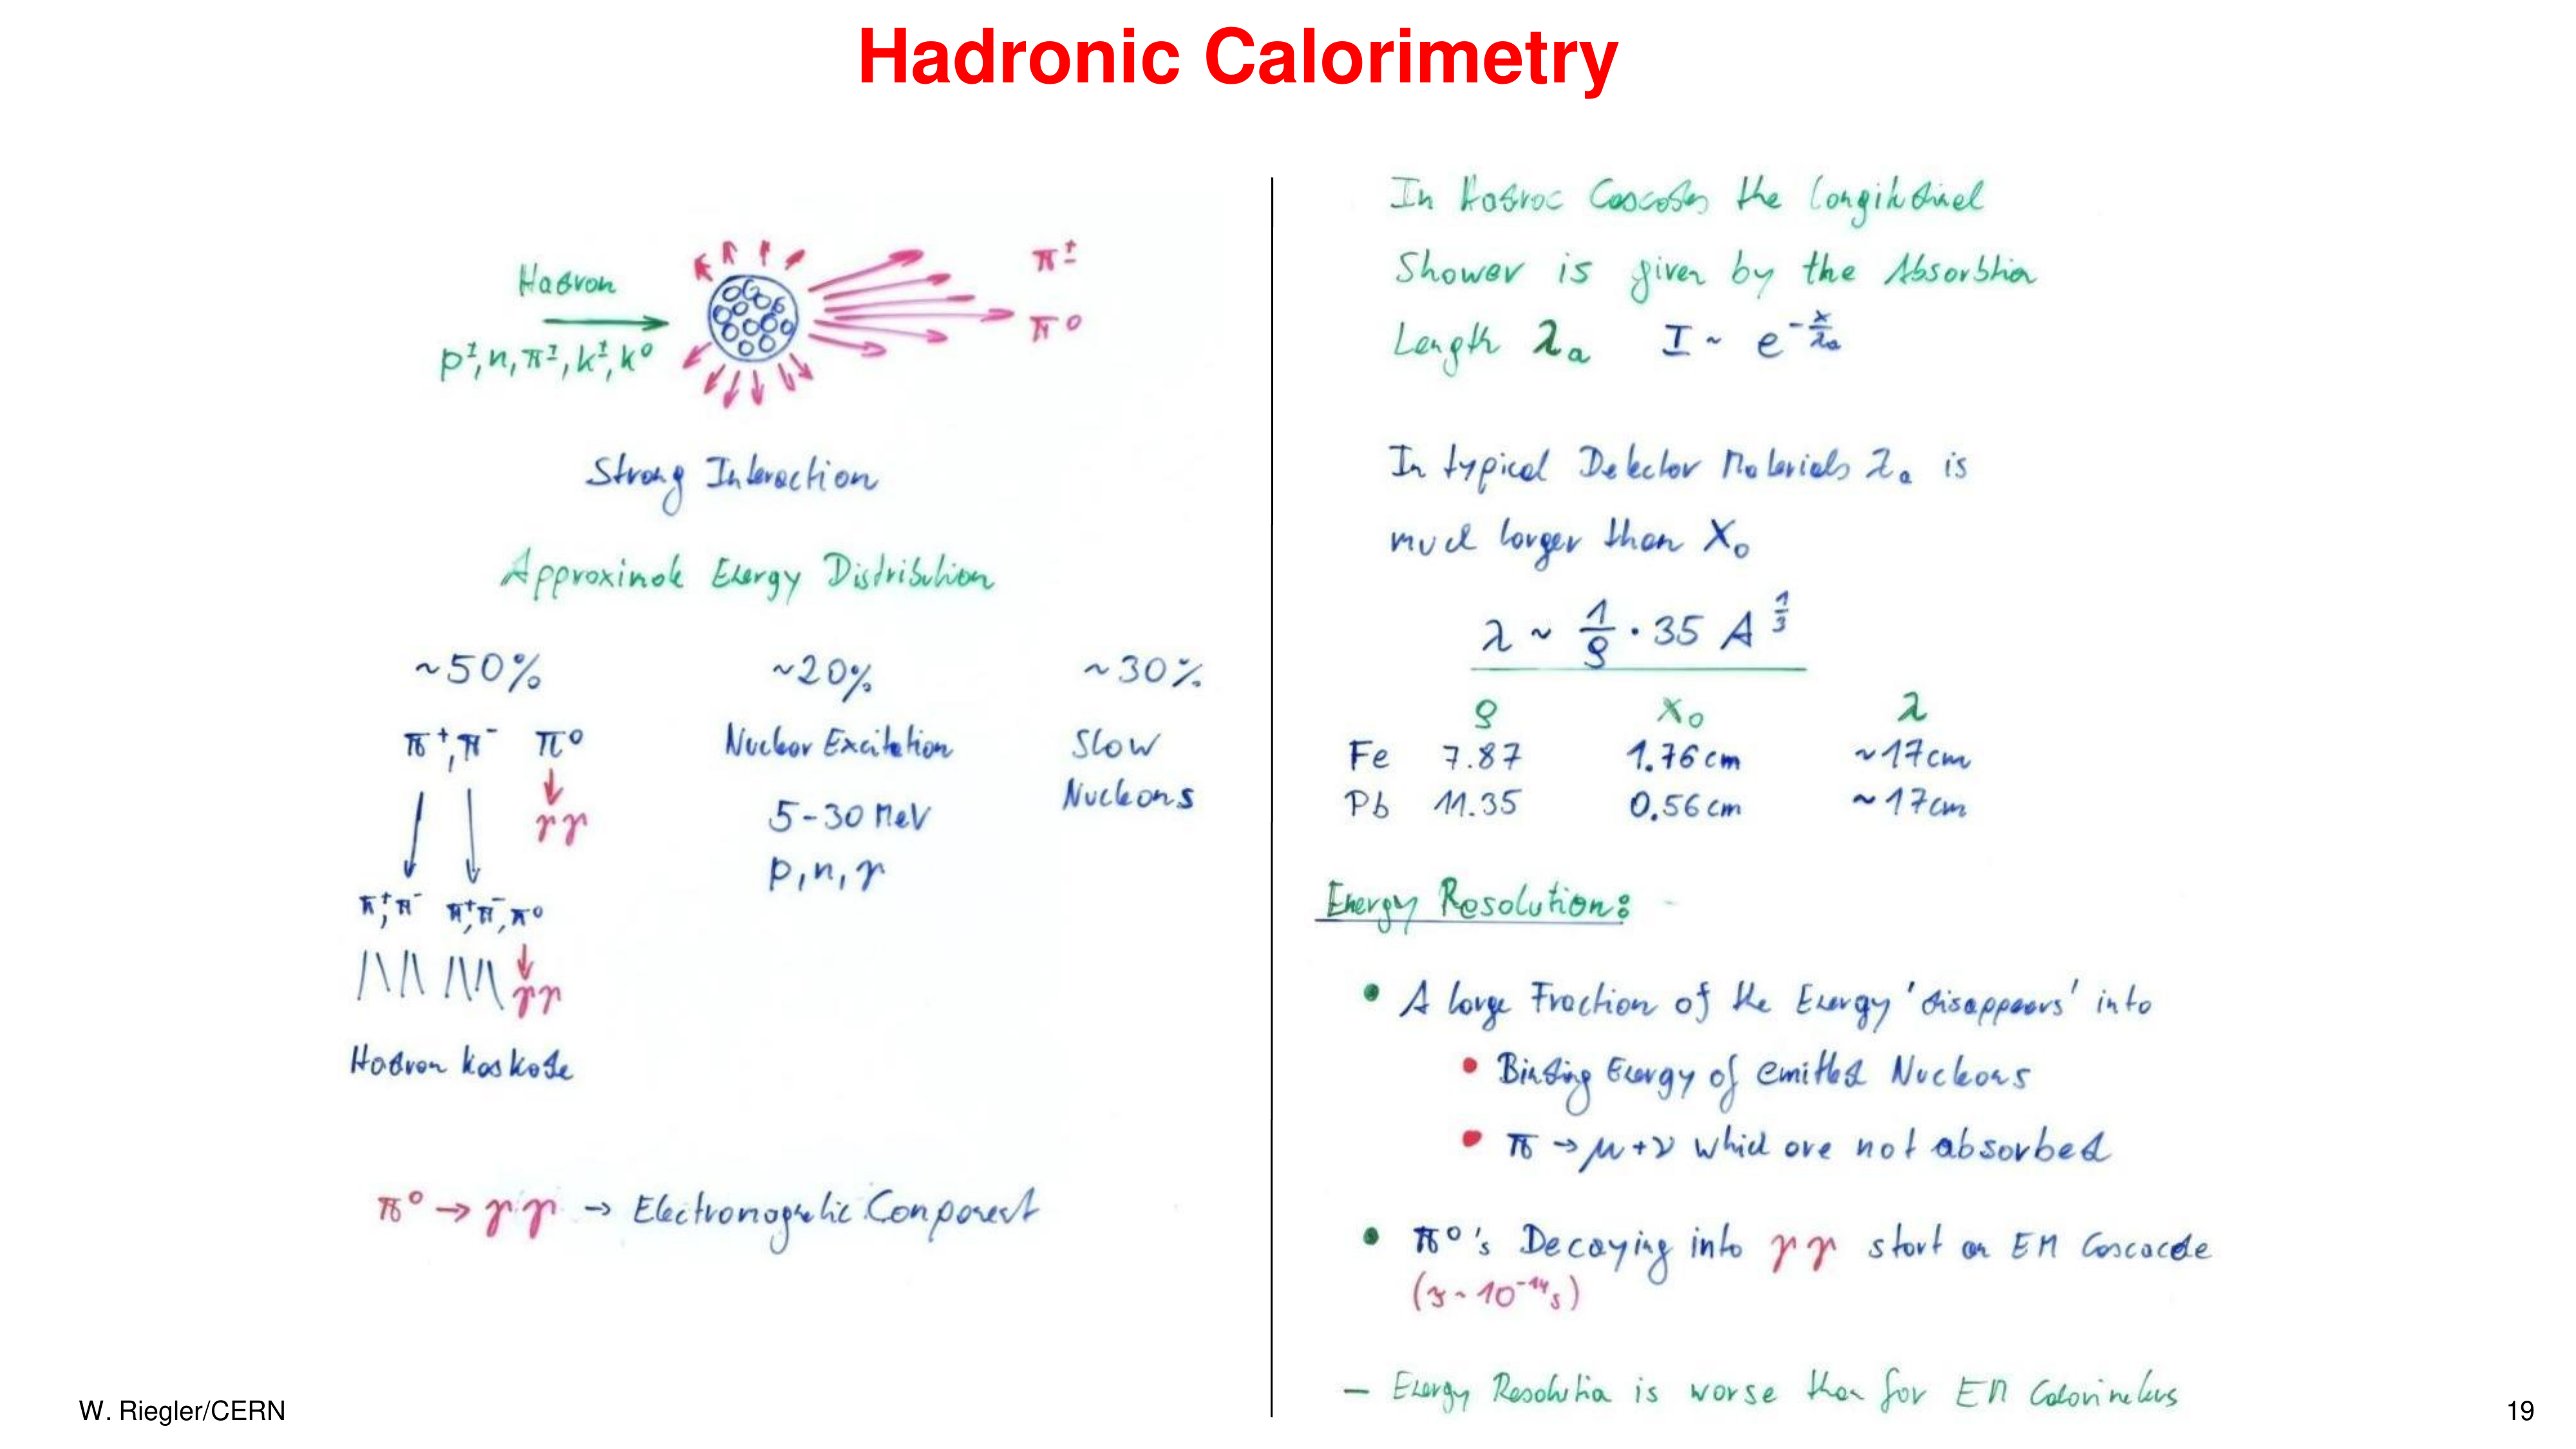 Hadronic Calorimetry
Hadron
p±, n, π±, k±, k⁰
π±
π⁰
Strong Interaction
Approximate Energy Distribution
~50%
~20%
~30%
π⁺, π⁻ π⁰
Nuclear Excitation
Slow
Nucleons
γγ
5-30 MeV
p, n, γ
π⁺, π⁻ π⁺, π⁻, π⁰
γγ
Hadron Kaskade
π⁰ → γγ → Electromagnetic Component
In Hadroc Cascades the Longitudinal
Shower is given by the Absorbtion
Length λₐ I ~ e^(-x/λₐ)
In typical Detector Materials λₐ is
much larger than X₀
λ ~ 1/ρ · 35 A^(1/3)
ρ X₀ λ
Fe 7.87 1.76 cm ~17cm
Pb 11.35 0.56 cm ~17cm
Energy Resolution:
• A large Fraction of the Energy 'disappears' into
• Binding Energy of emitted Nucleons
• π → μ + ν which are not absorbed
• π⁰'s Decaying into γγ start an EM Cascade
(τ ~ 10⁻¹⁴ s)
– Energy Resolution is worse than for EM Calorimeters
W. Riegler/CERN
19